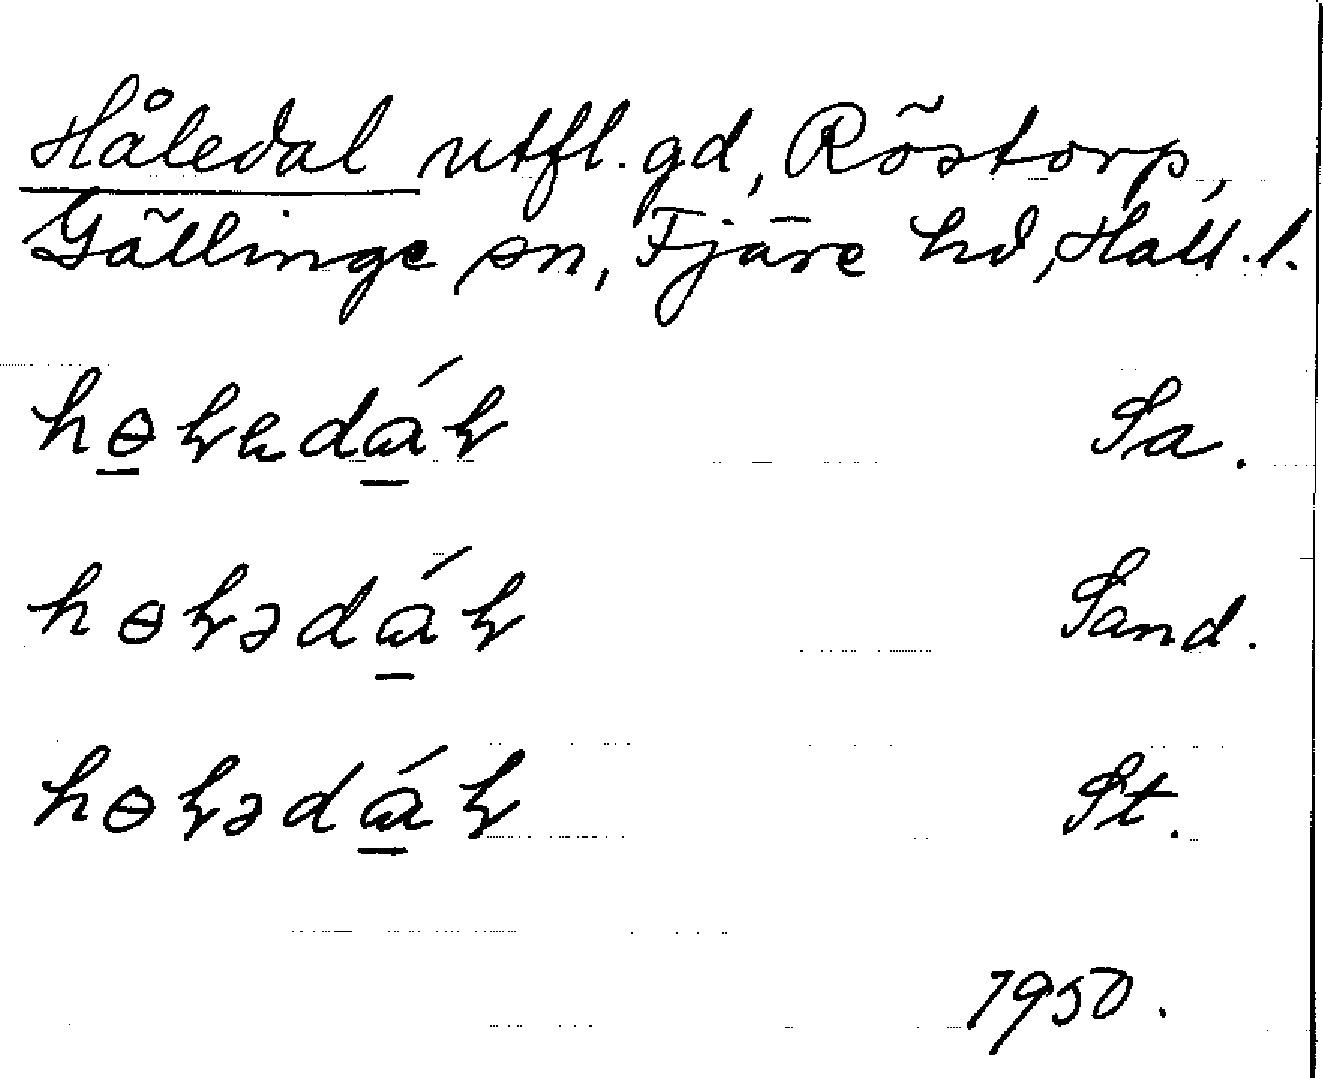 Håledal utfl. gd, Röstorp,
Gällinge sn, Fjäre hd, Hall. l.
hɵɫɐdáɫ Sa.
hɵɫədáɫ Sand.
hɵɫədáɫ St.
1950.